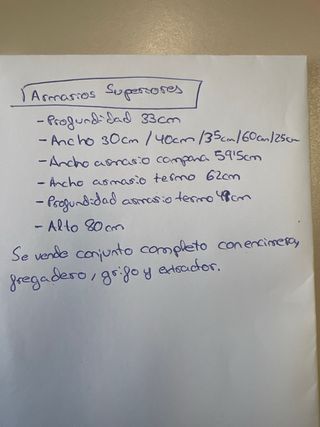 Armarios Superiores
- Profundidad 33cm
- Ancho 30cm / 40cm / 35cm / 60cm / 25cm
- Ancho armario campana 59'5cm
- Ancho armario termo 62cm
- Profundidad armario termo 49cm
- Alto 80cm
Se vende conjunto completo con encimera,
fregadero, grifo y extractor.